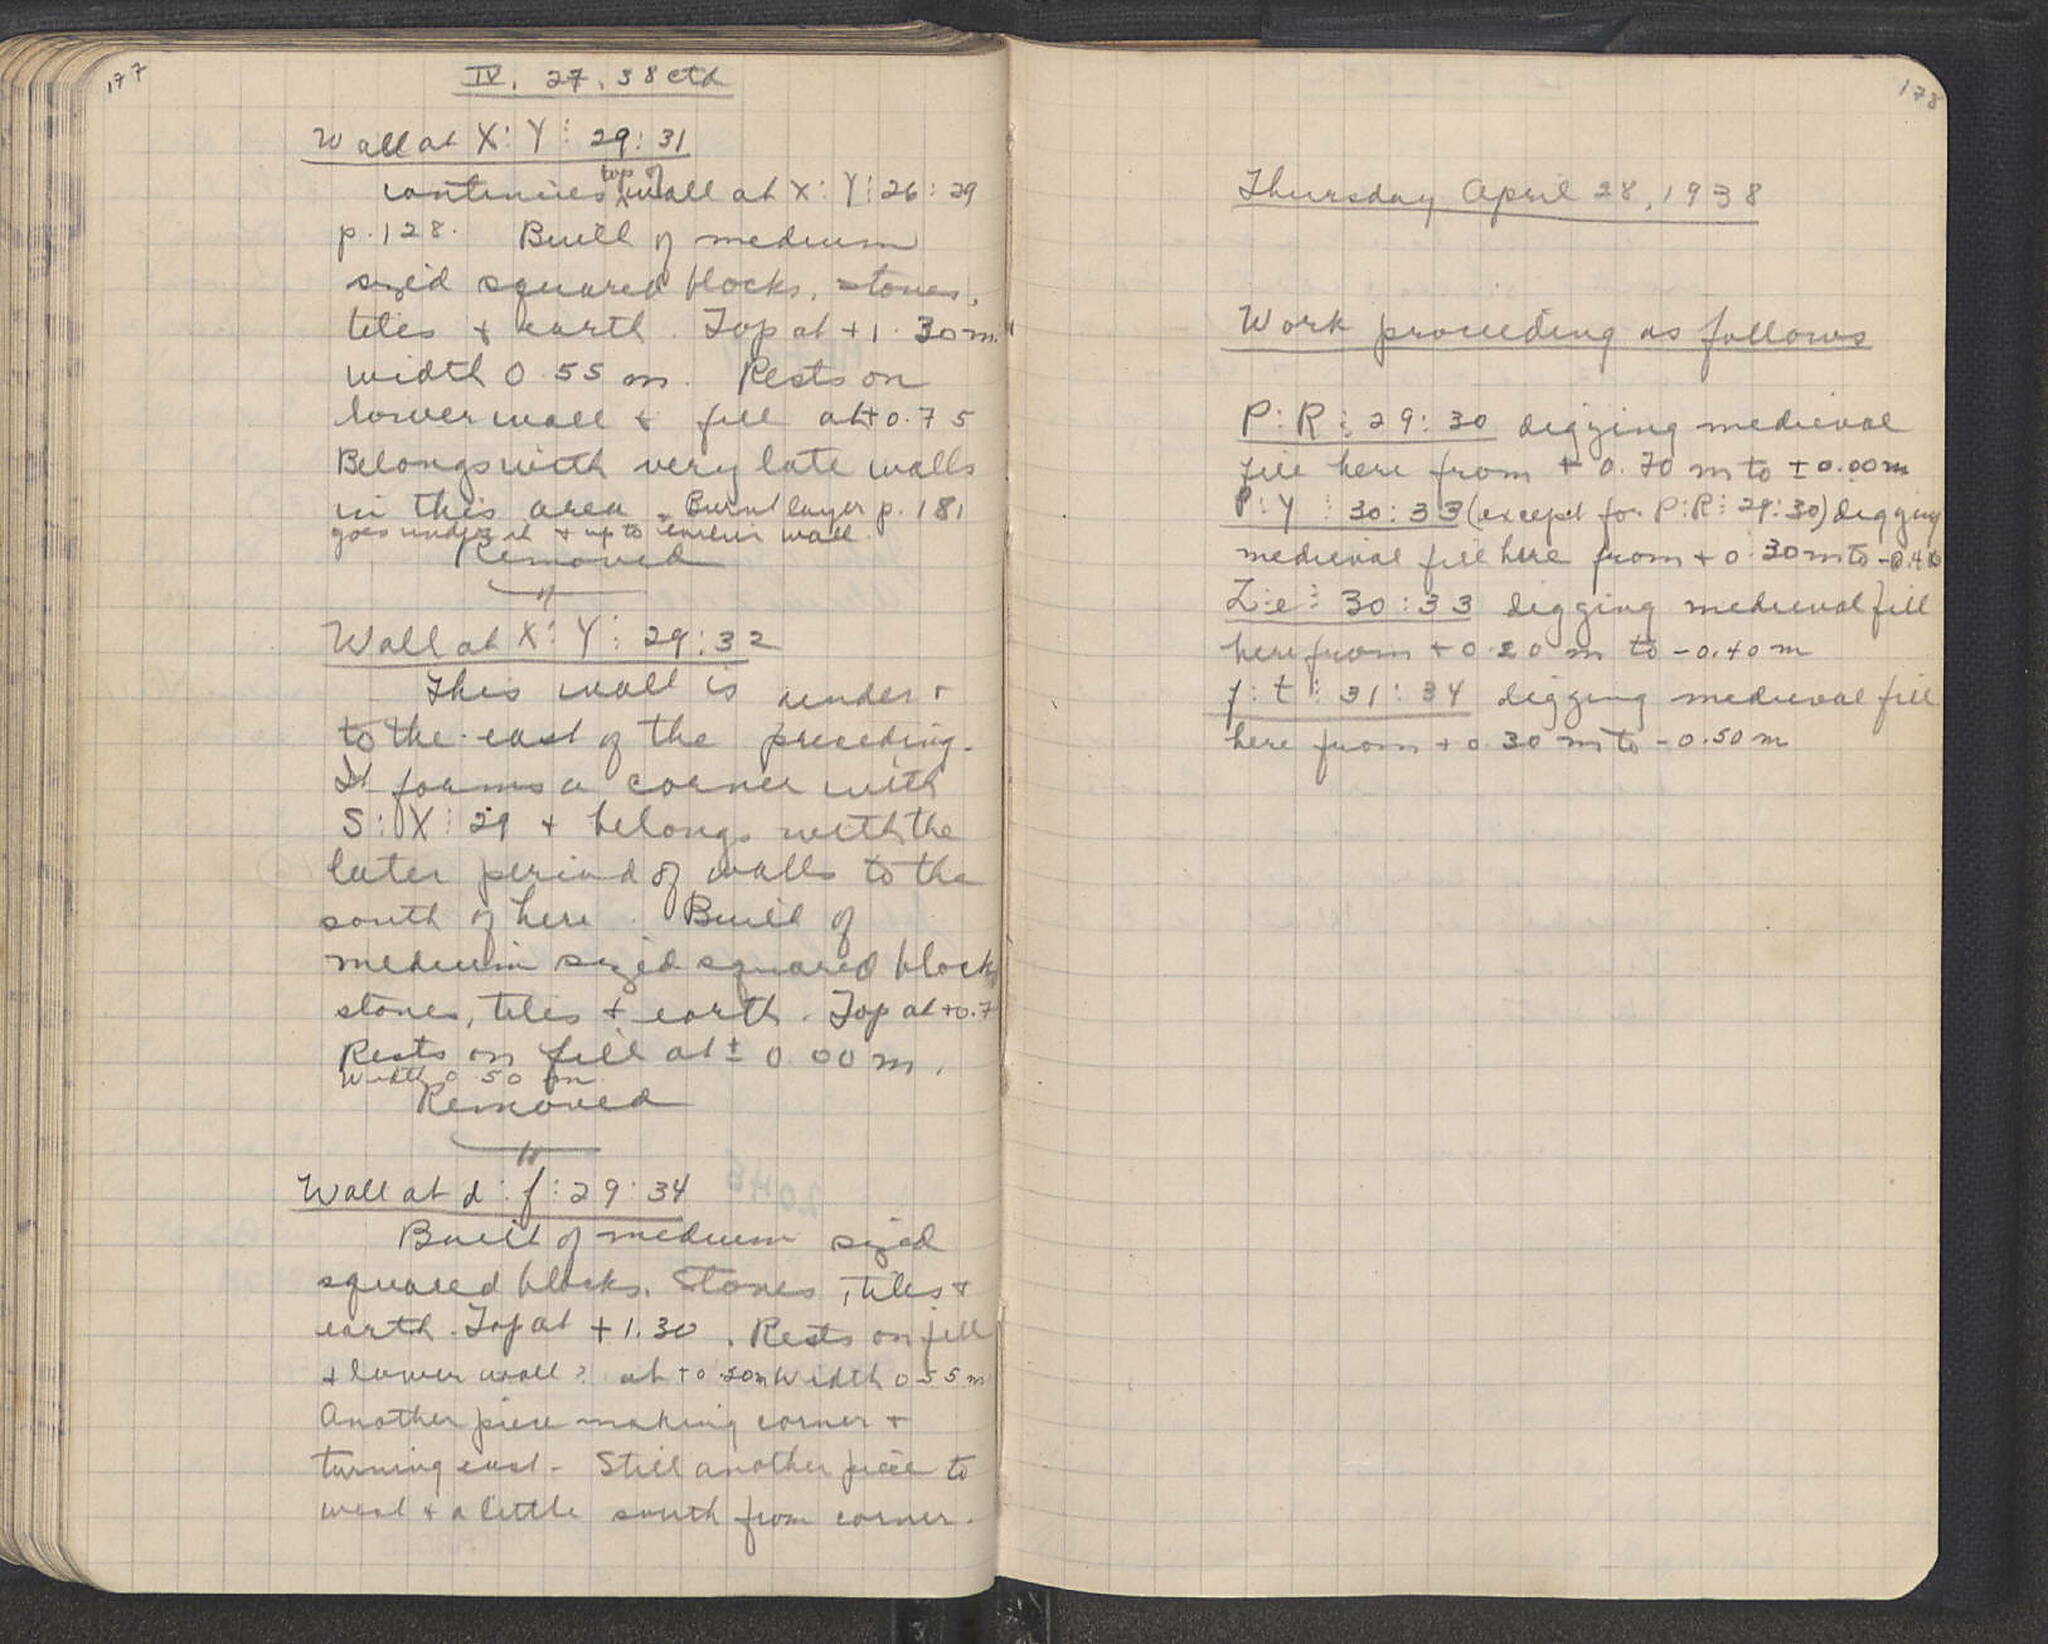 177
IV. 27. 38 ctd
Wall at X:Y⋮29:31
continues top of wall at X:Y⋮26:29
p.128. Built of medium
sized squared blocks, stones,
tiles + earth. Top at +1.30 m.
width 0.55 m. Rests on
lower wall + fill at +0.75
Belongs with very late walls
in this area. Burnt layer p. 181
goes under it + up to earlier wall.
Removed
Wall at X:Y⋮29:32
This wall is under +
to the east of the preceding.
It forms a corner with
S:X⋮29 + belongs with the
later period of walls to the
south of here. Built of
medium sized squared blocks
stones, tiles + earth. Top at +0.7
Rests on fill at ± 0.00 m.
Width 0.50 m
Removed
Wall at d:f:29:34
Built of medium sized
squared blocks. Stones, tiles +
earth. Top at +1.30. Rests on fill
+ lower wall? at +0.20m Width 0.55 m
Another piece making corner +
turning east - Still another piece to
west + a little south from corner.
178
Thursday April 28, 1938
Work proceeding as follows
P:R⋮29:30 digging medieval
fill here from + 0.70 m to ±0.00m
P:Y⋮30:33 (except for P:R⋮29:30) digging
medieval fill here from +0.30m to -0.40
Z:e⋮30:33 digging medieval fill
here from +0.20 m to -0.40 m
f:t⋮31:34 digging medieval fill
here from +0.30 m to -0.50 m